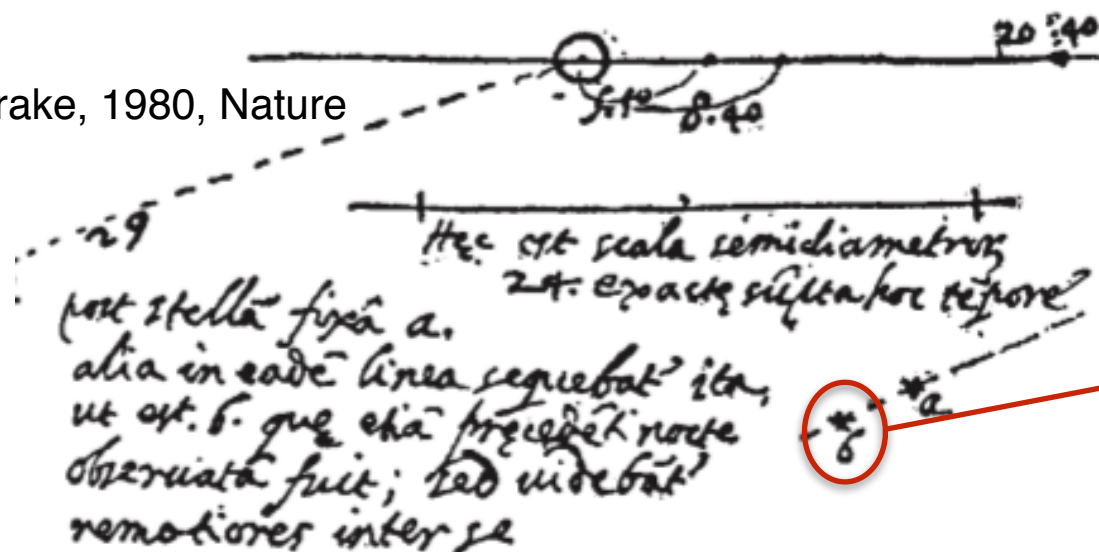 20 :40
rake, 1980, Nature
5.10 8.40
29
Hęc est scala semidiametroꝝ
24. exactę sūpta hoc tēpore
post stellā fixā a.
alia in eadē linea sequebat' ita,
ut est. b. quę etiā pręcedēti nocte
obseruata fuit; sed uidebāt'
remotiores inter se
a
b